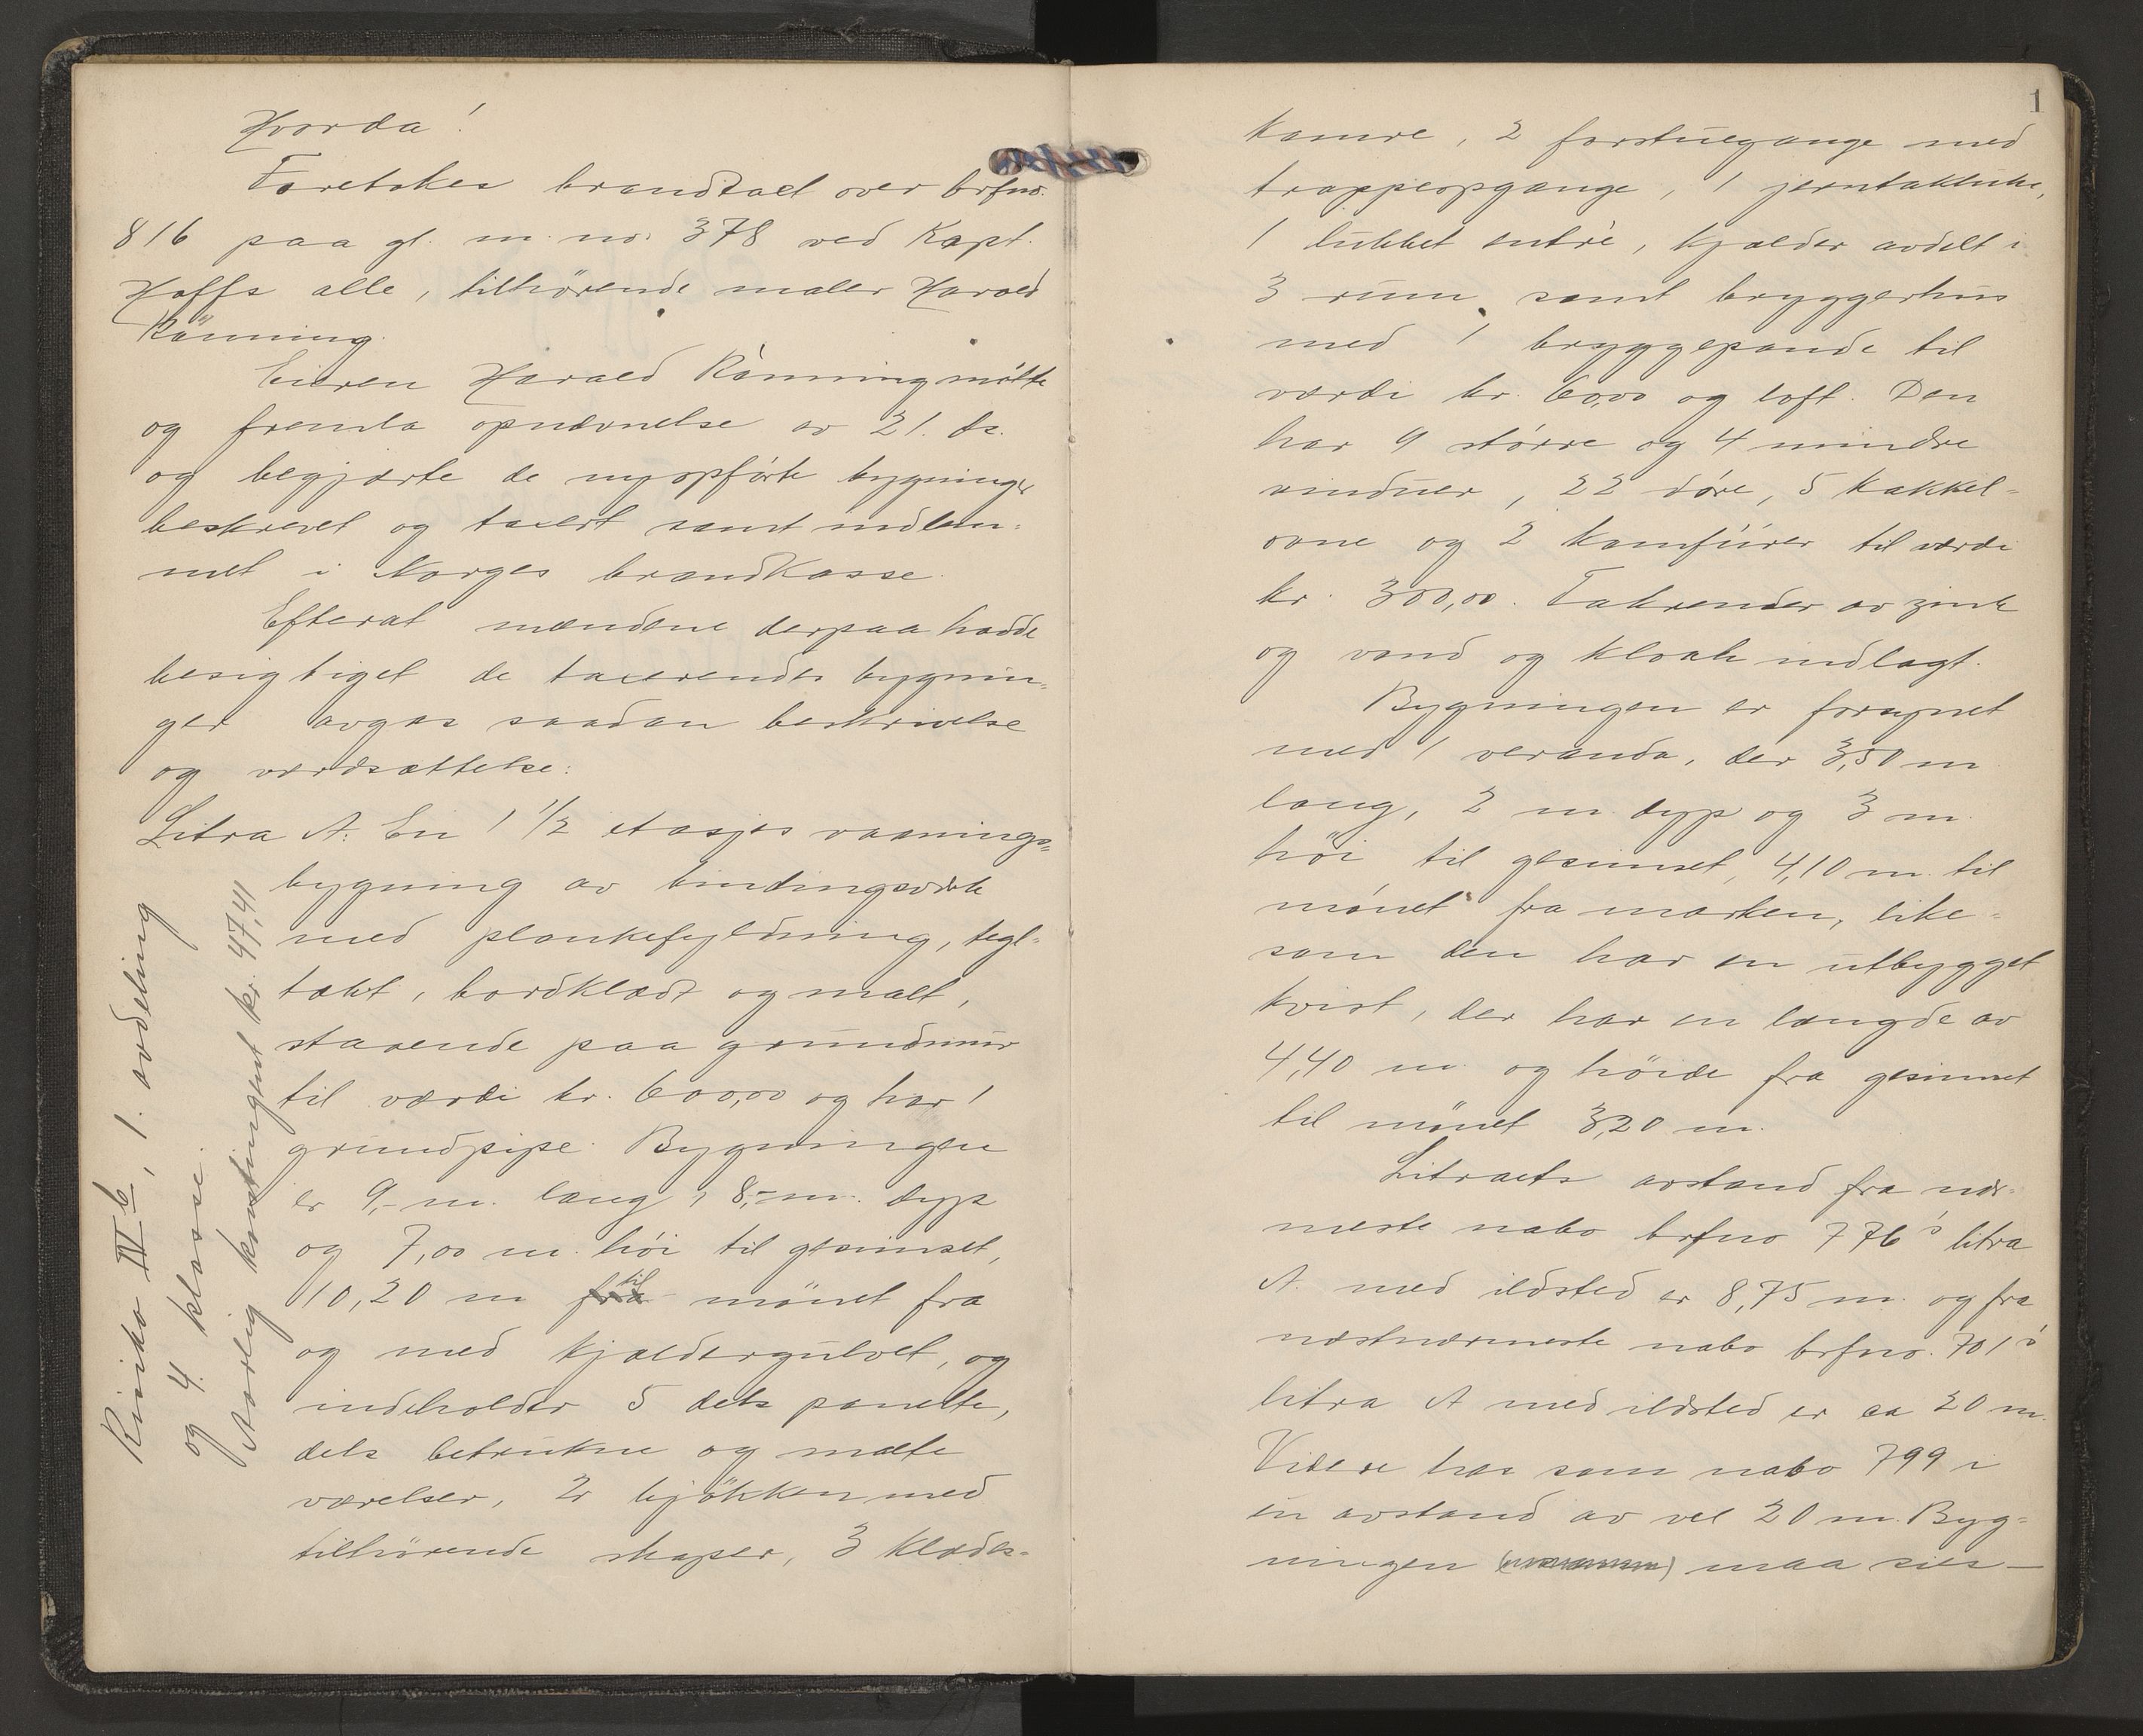 Hvorda!
Foretokes brandtaxt over brfno.
816 paa gl. m. no. 378 ved Kapt.
Hoffs alle, tilhörende maler Harald
Rönning.
Eieren Harald Rönning mötte
og fremla opnævnelse av 21. ds.
og begjærte de nyopförte bygninger
beskrevet og taxert samt indlem=
met i Norges brandkasse.
Efterat mændene derpaa hadde
besigtiget de taxerendes bygnin=
ger avgas saadan beskrivelse
og værdsættelse:
Litra A: En 1 1/2 etasjes vaanings=
bygning av bindingsverk
med plankefyldning, tegl=
takt, bordklædt og malt,
staaende paa grundmur
til værdi kr. 600,00 og har 1
grundpipe. Bygningen
er 9,- m. lang, 8,- m. dyp
og 7,00 m. höi til gesimset,
10,20 m fra til mönet fra
og med kjældergulvet, og
indeholder 5 dels panelte,
dels betrukne og malte
værelser, 2 kjökken med
tilhörende skaper, 3 klædes-
Risiko IV b, 1. avdeling
og 4. klasse.
Aarlig kontingent kr. 47,41
1
kamre, 2 forstuegange med
trappeopgange, 1 jerntakluke,
1 lukket entrè, kjælder avdelt i
3 rum samt bryggerhus
med 1 bryggepande til
værdi kr. 60,00 og loft. Den
har 9 större og 4 mindre
vinduer, 22 döre, 5 kakkel=
ovne og 2 komfürer til værdi
kr. 300,00. Takrender av zink
og vand og kloak indlagt.
Bygningen er forsynet
med 1 veranda, der 3,50 m
lang, 2 m dyp og 3 m.
höi til gesimset, 4,10 m. til
mönet fra marken, like=
som den har en utbygget
kvist, der har en længde av
4,40 m. og höide fra gesimset
til mönet 3,20 m.
Litraets avstand fra nær=
meste nabo brfno 776's litra
A. med ildsted er 8,75 m. og fra
næstnærmeste nabo brfno. 701's
litra A med ildsted er ca 20 m.
Videre har som nabo 799 i
en avstand av vel 20 m. Byg=
ningen maa sies -